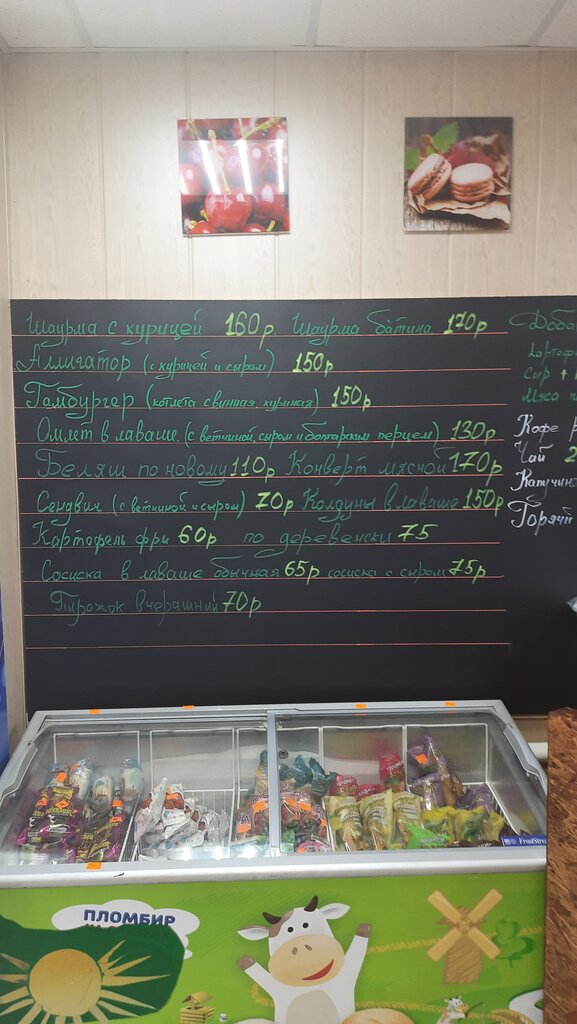 Шаурма с курицей 160р Шаурма батина 170р
Аллигатор (с курицей и сыром) 150р
Гамбургер (котлета свинная, куриная) 150р
Омлет в лаваше (с ветчиной, сыром и болгарским перцем) 130р
Беляш по новому 110р Конверт мясной 170р
Сендвич (с ветчиной и сыром) 70р Колдуны в лаваше 150р
Картофель фри 60р по деревенски 75
Сосиска в лаваше обычная 65р сосиска с сыром 75р
Пирожок вчерашний 70р
Доба
картоф
сыр +
Мяса
Кофе
Чай 2
Капучино
Горячий
ПЛОМБИР